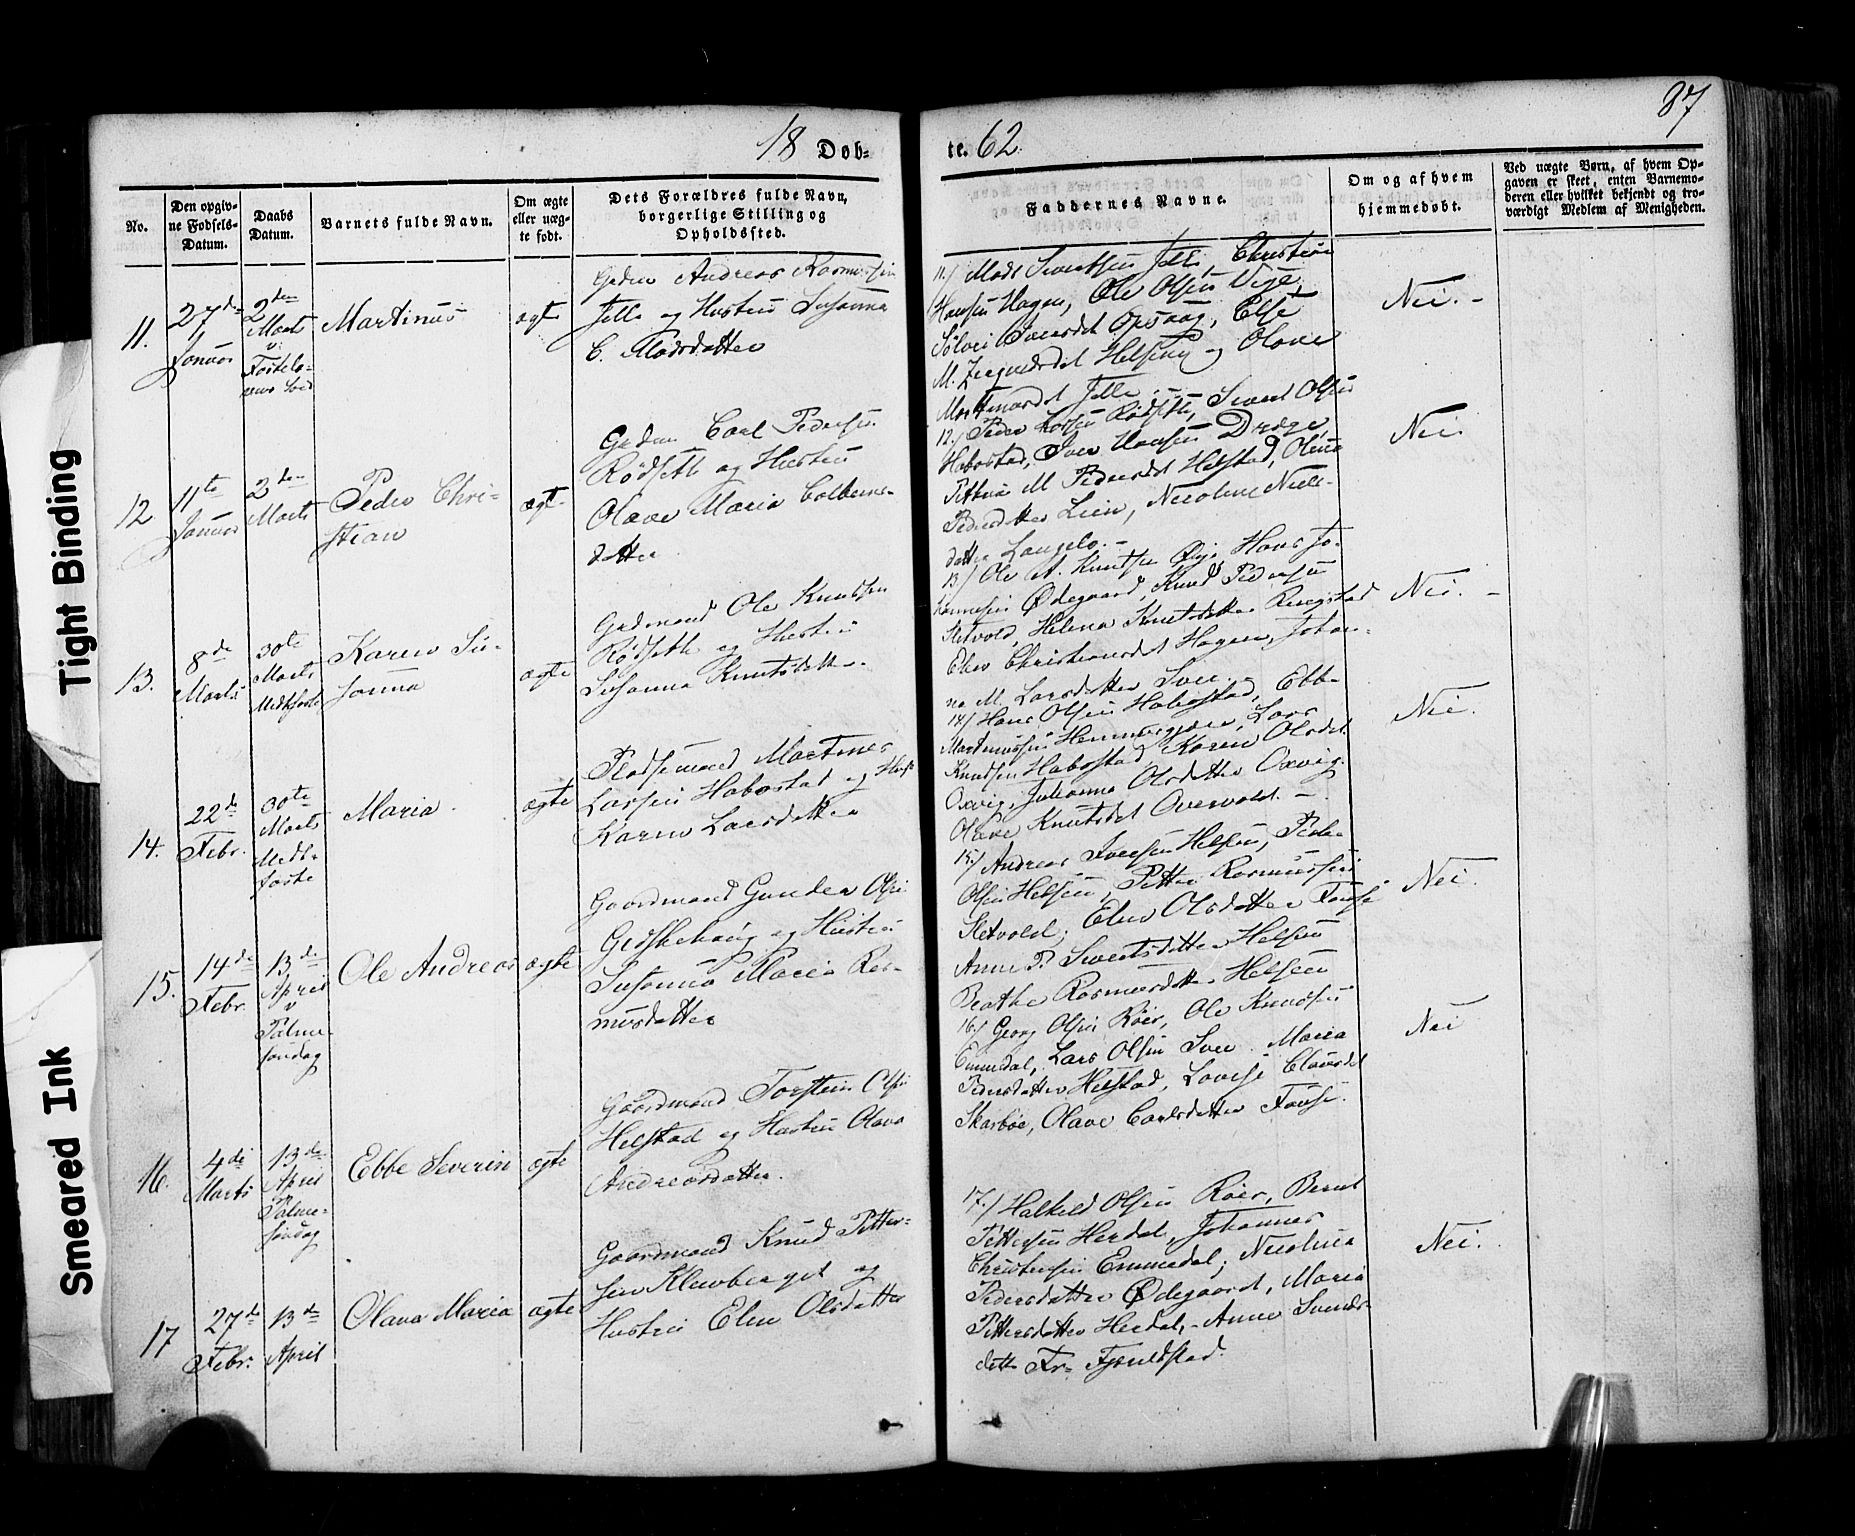 87
18 Døb-
te. 62
No.
Den opgiv-
ne Fødsels-
Datum.
Daabs
Datum.
Barnets fulde Navn.
Om ægte
eller uæg-
te født.
Dets Forældres fulde Navn,
borgerlige Stilling og
Opholdssted.
Faddernes Navne.
Om og af hvem
hjemmedøbt.
Ved uægte Børn, af hvem Op-
gaven er skeet, enten Barnemo-
deren eller hvilket bekjendt og tro-
værdigt Medlem af Menigheden.
11.
27de
Januar
2den
Marts
Martinus
ægt
Andreas Rasmussen
og Hustru Susanna
C. Madsdatter
11/ Mads Sivertsen Christian
Hansen Hagen, Ole Olsen
Sølvei Iversdet Opsaug, Else
og Olave
Nei. -
12.
11te
Januar
2den
Marts
Peder Chri-
stian
ægt
Carl Pedersen
Rødseth og Hustru
Olave Maria Colbens-
datter
12/ Peder Rødseth, Sivert Olsen
Habostad, Iver Hansen
M Pedersdet Helstad, Olina
Pedersdatter Lien, Nicoline Niels-
datter Langelo. -
Nei.
13.
8de
Marts
30te
Marts
Karen Su-
sanna
ægte
Ole Knudsen
Rødseth og Hustru
Susanna Knutsdatter
13/ Ole A. Knutsen Øye Hans Jo-
hannesen Ødegaard, Knud Pedersen
Sletvold, Helena Knutsdatter Ringstad
Elen Christiansdet Hagen, Johan-
na M. Larsdatter Sver. -
Nei. -
14.
22de
Febr.
30te
Marts
Maria.
ægte
Pladsemand Martines
Larsen Habostad og Hust
Karen Larsdatter
14/ Hans Olsen Habostad, Ebbe
Martinussen Lars
Knudsen Habostad, Karen Olsdet
Oxvig, Johanna Olsdatter Oxvig.
Olave Knutsdet Overvold. -
Nei.
15.
14de
Febr.
13de
April
v
Palme-
søndag
Ole Andreas
ægte
Gaardmand Gunder Olsen
Gedskehaug og Hustru
Susanna Maria Ras-
musdatter
15/ Andreas Iversen Helsem, Peder
Olsen Helsem, Petter Rasmussen
Sletvold, Elen Olsdatter
Anne P. Sivertsdatter Helsem
Beathe Rasmusdatter Helsem
Nei.
16.
4de
Marts
13de
April
Palme-
søndag
Ebbe Severin
ægte
Gaardmand Torstein Olsen
Helstad og Hustru Olava
Andreasdatter.
16/ Georg Olsen Røer, Ole Knudsen
Emmedal, Lars Olsen Sver. Maria
Pedersdatter Helstad, Lovise Clausdet
Skarbøe, Olave Carlsdatter
Nei
17
27de
Febr.
13de
April
Olava Maria
ægte
Gaardmand Knud Petter-
sen Klevberget og
Hustru Elen Olsdatter
17/ Halkild Olsen Røer, Bernt
Pettersen Herdal, Johannes
Christensen Emmedal, Nicolina
Pedersdatter Ødegaard, Maria
Pettersdatter Herdal, - Anne
dett Fr= Fjeldstad.
Nei.
Tight Binding
Smeared Ink